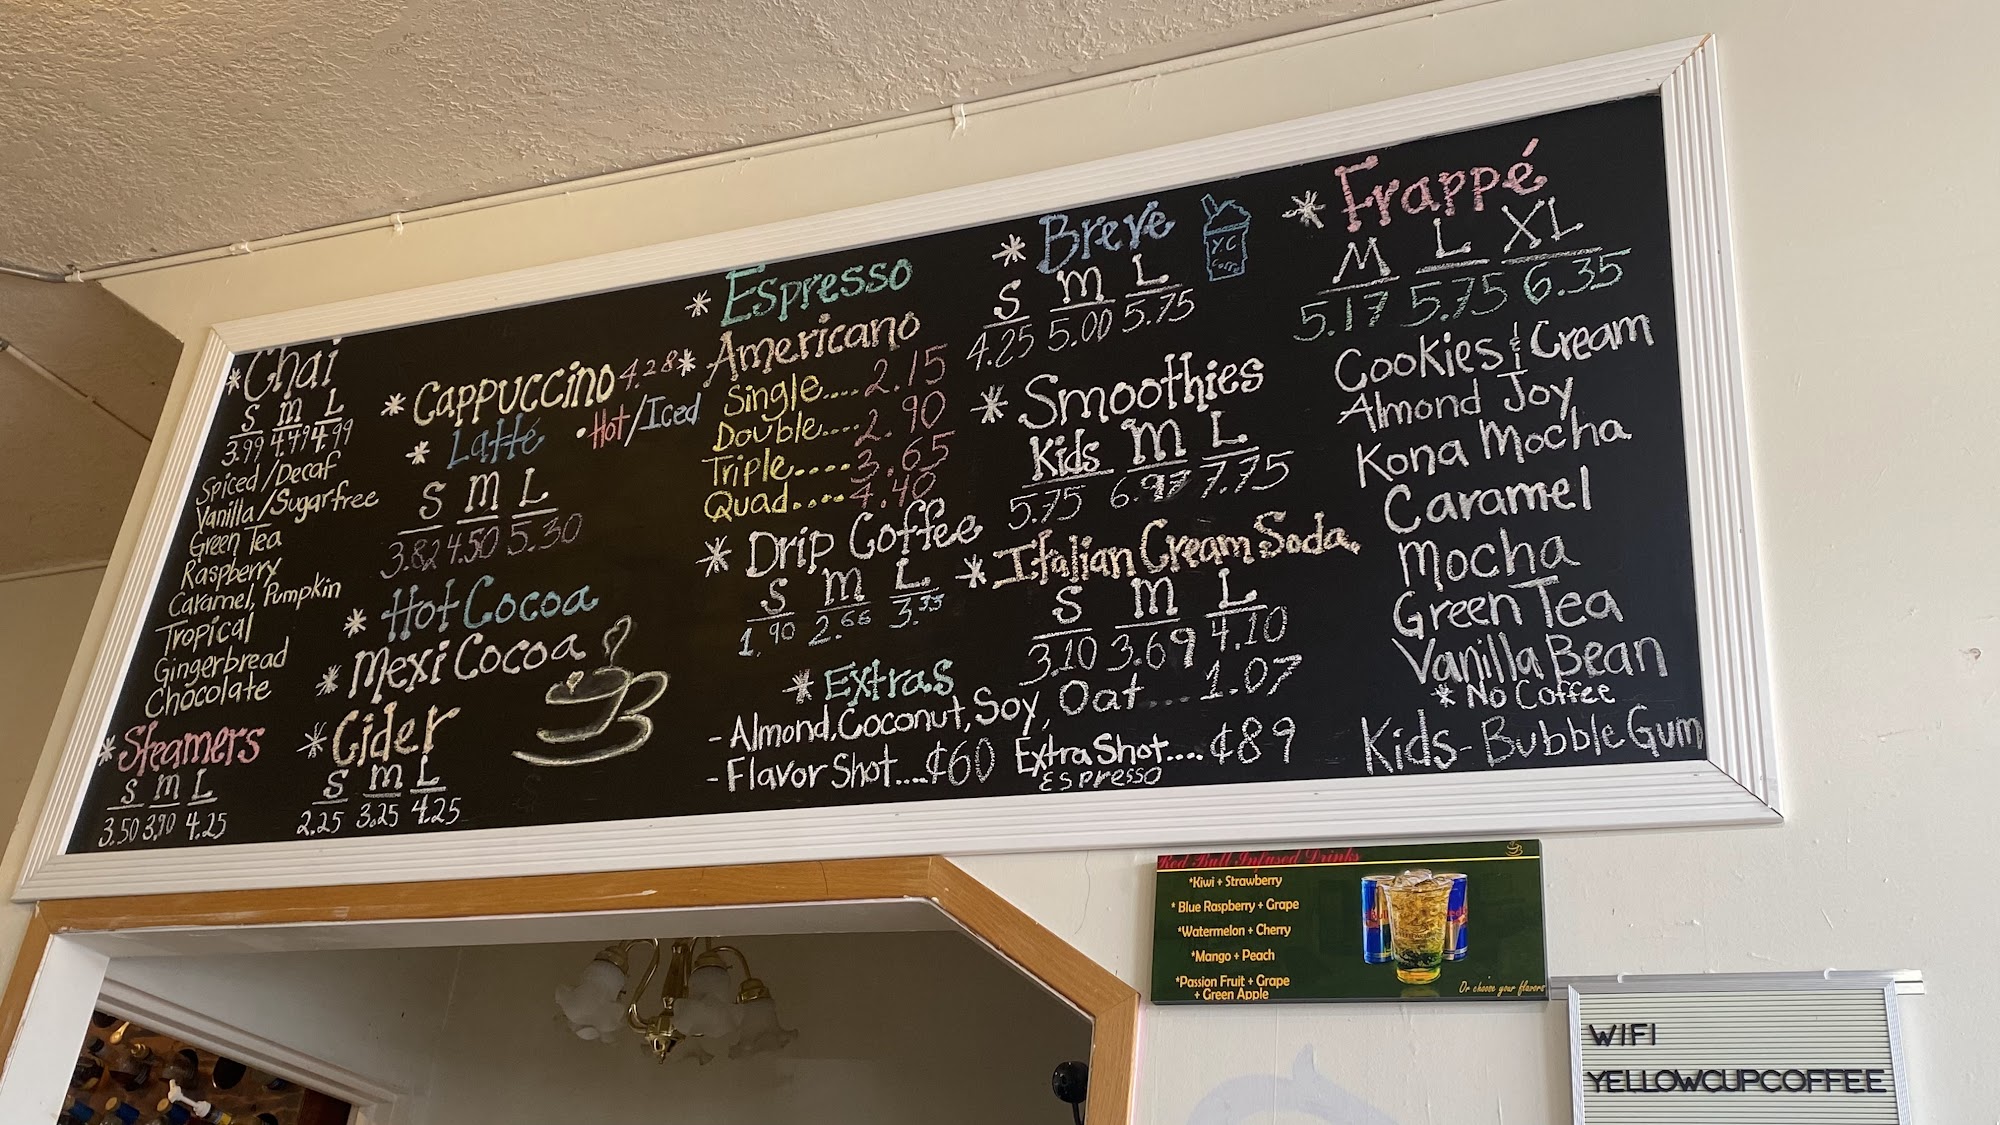 *Chai
S M L
3.99 4.49 4.99
Spiced/Decaf
Vanilla/Sugarfree
Green Tea
Raspberry
Caramel, Pumpkin
Tropical
Gingerbread
Chocolate
*Steamers
S M L
3.50 3.90 4.25
*Cappuccino 4.28
*Latté •Hot/Iced
S M L
3.82 4.50 5.30
*Hot Cocoa
*Mexi Cocoa
*Cider
S M L
2.25 3.25 4.25
*Espresso
*Americano
Single....2.15
Double....2.90
Triple....3.65
Quad....4.40
*Drip Coffee
S M L
1.90 2.66 3.35
*Extras
-Almond, Coconut, Soy, Oat...1.07
-Flavor Shot....¢60 Extra Shot....¢89
Espresso
*Breve
S M L
4.25 5.00 5.75
Y.C
*Smoothies
Kids M L
5.75 6.97 7.75
*Italian Cream Soda
S M L
3.10 3.69 4.10
*Frappé
M L XL
5.17 5.75 6.35
Cookies & Cream
Almond Joy
Kona Mocha
Caramel
Mocha
Green Tea
Vanilla Bean
*No Coffee
Kids-Bubble Gum
Red Bull Infused Drinks
*Kiwi + Strawberry
*Blue Raspberry + Grape
*Watermelon + Cherry
*Mango + Peach
*Passion Fruit + Grape
+ Green Apple
Or choose your flavors
WIFI
YELLOWCUPCOFFEE